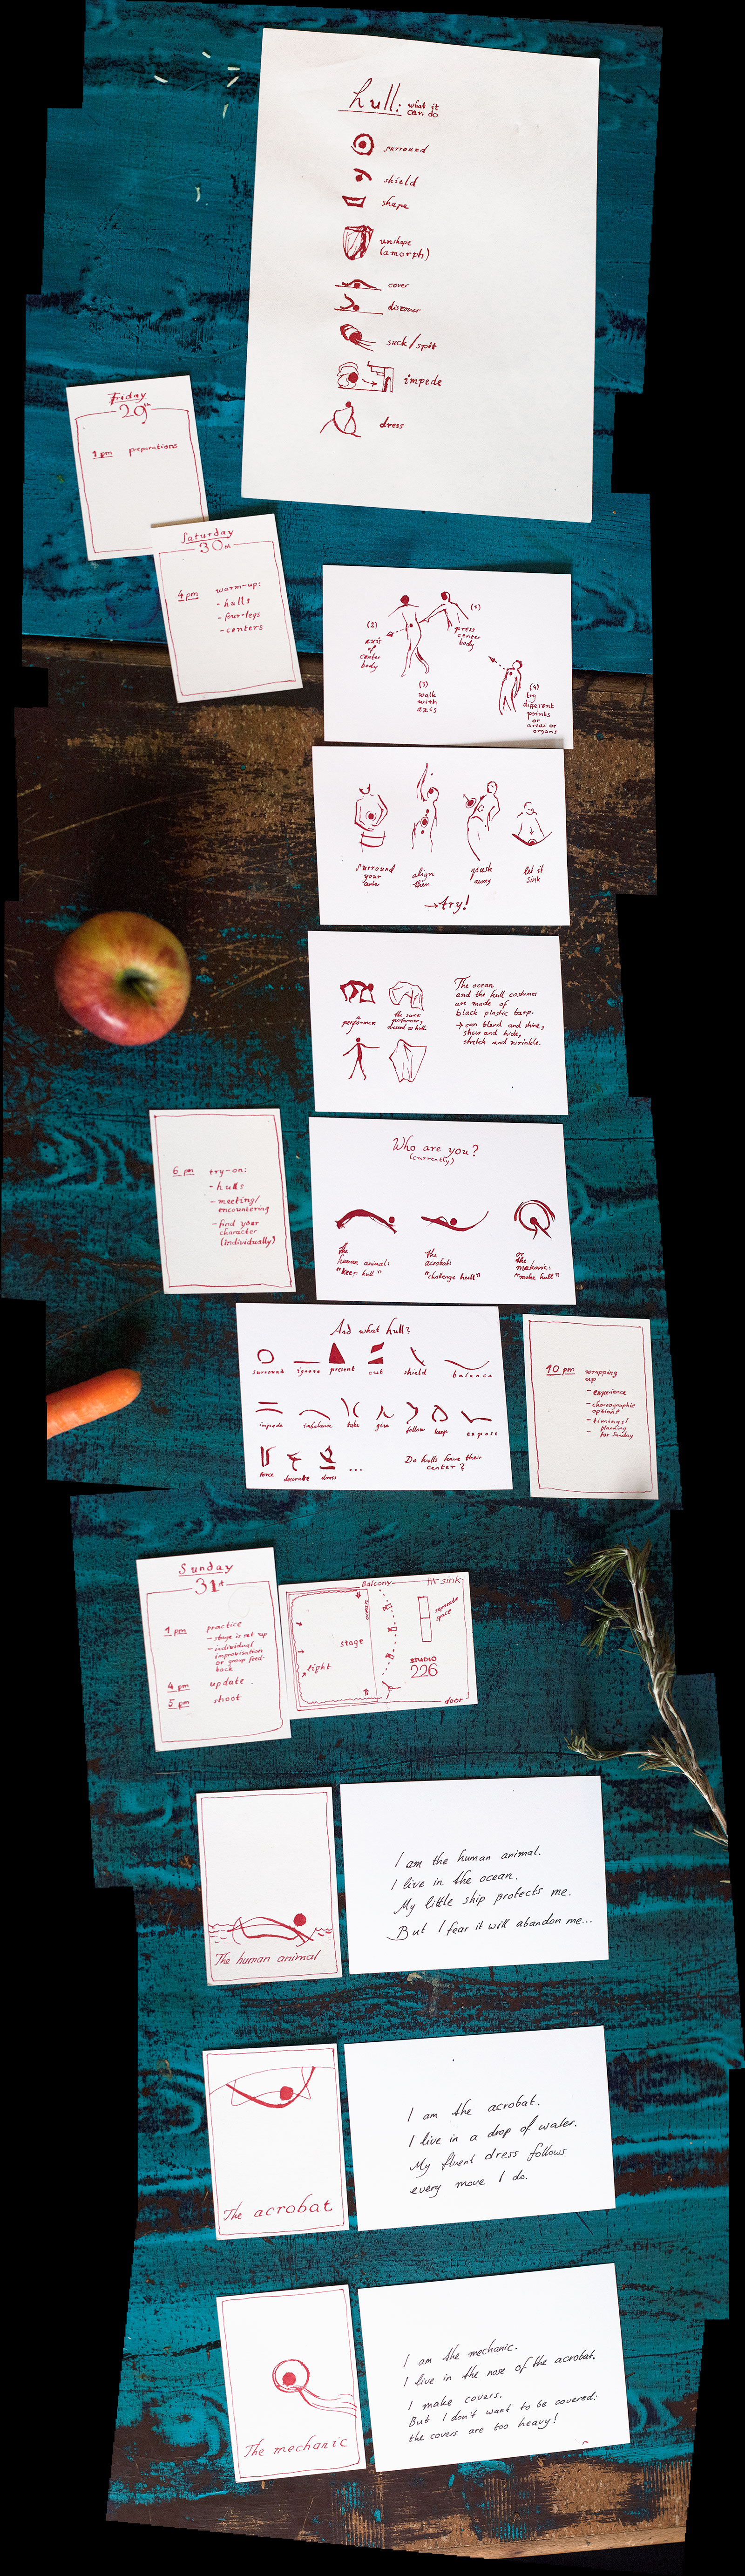 hull: what it
can do
surround
shield
shape
unshape
(amorph)
cover
discover
suck/spit
impede
dress
Friday
29th
1 pm preparations
Saturday
30th
4 pm warm-up:
- hulls
- four-legs
- centers
(1)
press
center
body
(2)
axis
of
center
body
(3)
walk
with
axis
(4)
try
different
points
or
areas or
organs
surround
your
align
them
push
away
let it
sink
→try!
a
performer
the same
performer,
dressed as hull.
The ocean
and the hull costumes
are made of
black plastic tarp.
→ can blend and shine,
show and hide,
stretch and wrinkle.
6 pm try-on:
- hulls
- meeting/
encountering
- find your
character
(individually)
Who are you?
(currently)
the
human animal:
"keep hull"
the
acrobat:
"challenge hull"
or
the
mechanic:
"make hull"
And what hull?
surround ignore present cut shield balance
impede imbalance take give follow keep expose
force decorate dress ...
Do hulls have their
center?
10 pm wrapping
up
- experience
- choreographic
options
- timings/
planning
for Sunday
Sunday
31st
1 pm practice
- stage is set up
- individual
improvisation
or group feed-
back
4 pm update
5 pm shoot
Balcony
sink
separate
space
stage
light
STUDIO
226
door
The human animal
I am the human animal.
I live in the ocean.
My little ship protects me.
But I fear it will abandon me...
The acrobat
I am the acrobat.
I live in a drop of water.
My fluent dress follows
every move I do.
The mechanic
I am the mechanic.
I live in the nose of the acrobat.
I make covers.
But I don't want to be covered:
the covers are too heavy!